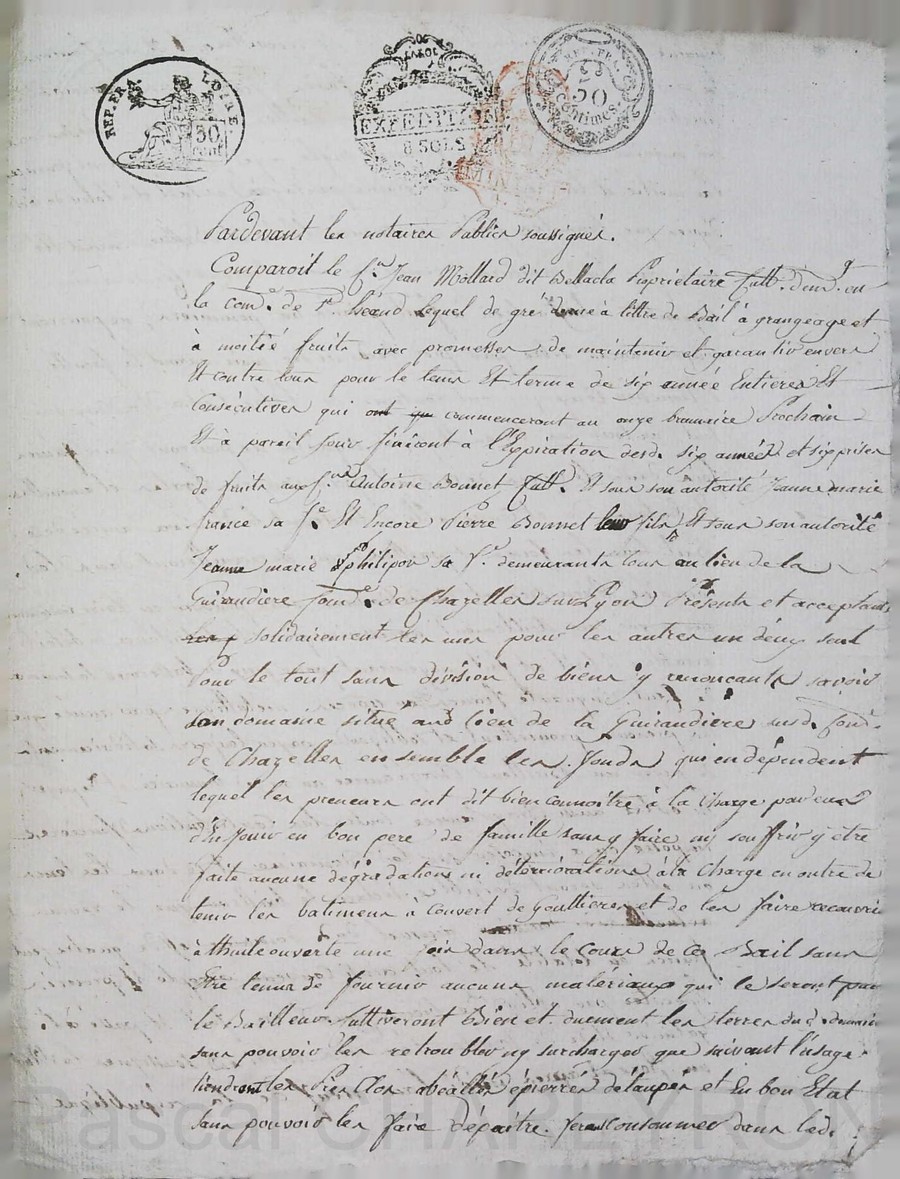 REP. FRA. LOIRE.
50
cent.
EXPEDITION
8 SOLS
REP. FRA.
50
Centimes.
Pardevant les notaires Publics soussignés.
Comparoit le Sn. Jean Mollard dit Bellacla Propriétaire Cult. dem.t en
la com.e de St. héand lequel de gré donne à tittre de Bail à grangeage et
à moitié fruits avec promesses de maintenir et garantir envers
Et contre tous pour le tems Et terme de six année Entieres Et
Consécutives qui ont commenceront au onze brumaire Prochain
Et à pareil jour finiront à l'Expiration desd. six années et six prises
de fruits aux Sn. Antoine Bonnet Cult. Et sous son autorité Jeanne marie
france sa fe. Et Encore Pierre Bonnet leur fils, Et sous son autorité
Jeanne marie philipon sa fe. demeurants tous au lieu de la
Guirandiere com.e de Chazelles sur Lyon Présents et acceptants
solidairement les uns pour les autres un d'eux seul
Pour le tout sans division de biens y renonçants savoir
son domaine situé aud lieu de la Guirandiere susd. com.e
de Chazelles ensemble les fonds qui en dépendent
lequel les preneurs ont dit bien connoitre, à la Charge par eux
d'En Jouir en bon pere de famille sans y faire ny souffrir y être
faite aucune dégradations ni détériorations à la Charge en outre de
tenir les batimens à Couvert de Gouttieres et de les faire recouvrir
à thuile ouverte une fois dans le cours de ce Bail sans
Etre tenus de fournir aucuns matériaux qui le seront par
le Bailleur. Cultiveront Bien et duement les terres dud. domaine
sans pouvoir les retroubler ny surcharger que suivant l'usage.
tiendront les Prés Clos abéallés épierrés détaupés et En bon Etat
sans pouvoir les faire dépaitre. feras consommer dans led.
Pascal CHAREYRON